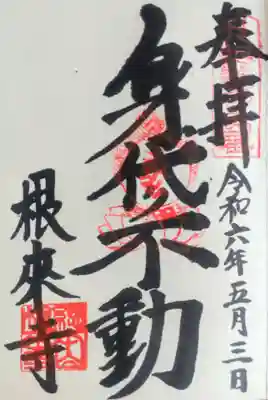 奉拝
令和六年五月三日
身代不動
根來寺